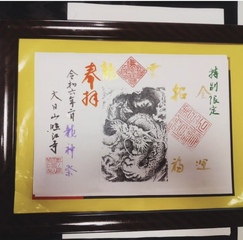 特別限定
金運
招福
龍
奉拝
令和六年二月
龍神祭
大日山
寺